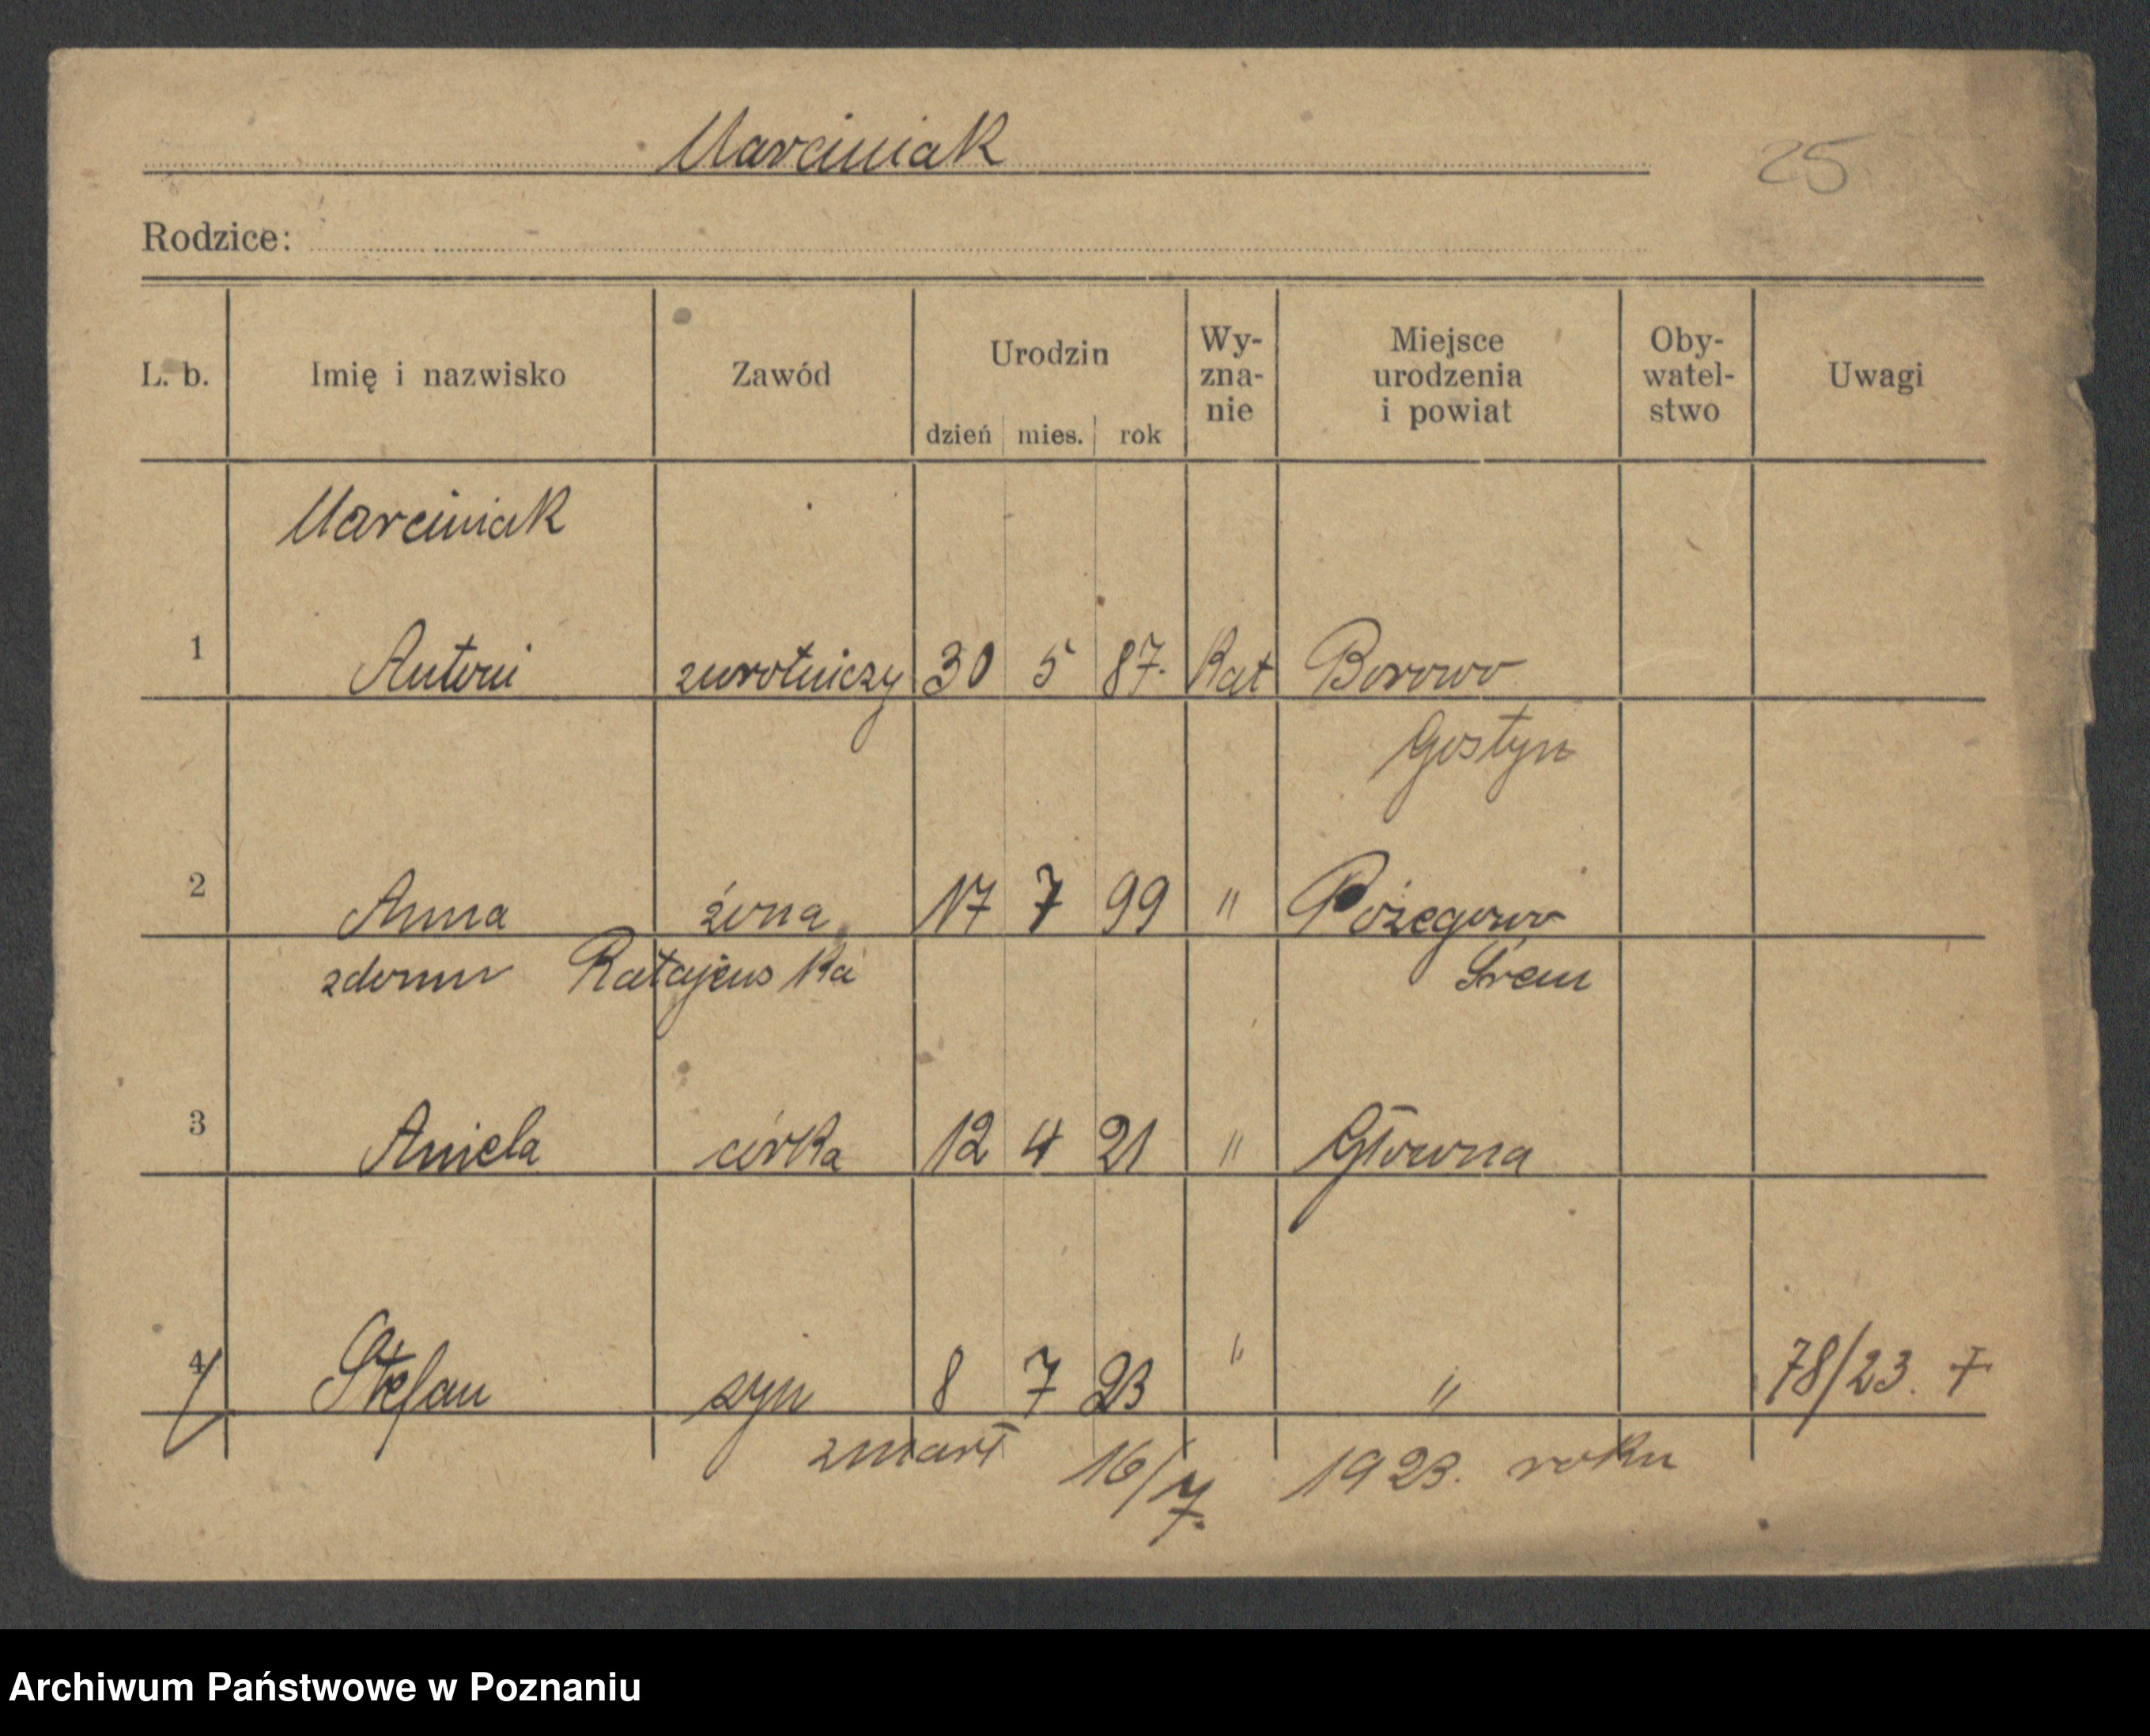 Marciniak
25
Rodzice:
L. b. Imię i nazwisko Zawód Urodzin dzień mies. rok Wy-zna-nie Miejsce urodzenia i powiat Oby-watel-stwo Uwagi
Marciniak
1 Antoni zwrotniczy 30 5 87. Kat Borowo
Gostyn
2 Anna żona 17 7 99 " Pożegowo
zdomu Ratajewska Śrem
3 Aniela córka 12 4 21 " Główna
4 Stefan syn 8 7 23 " " 78/23. +
zmarł 16/7. 1923. roku
Archiwum Państwowe w Poznaniu